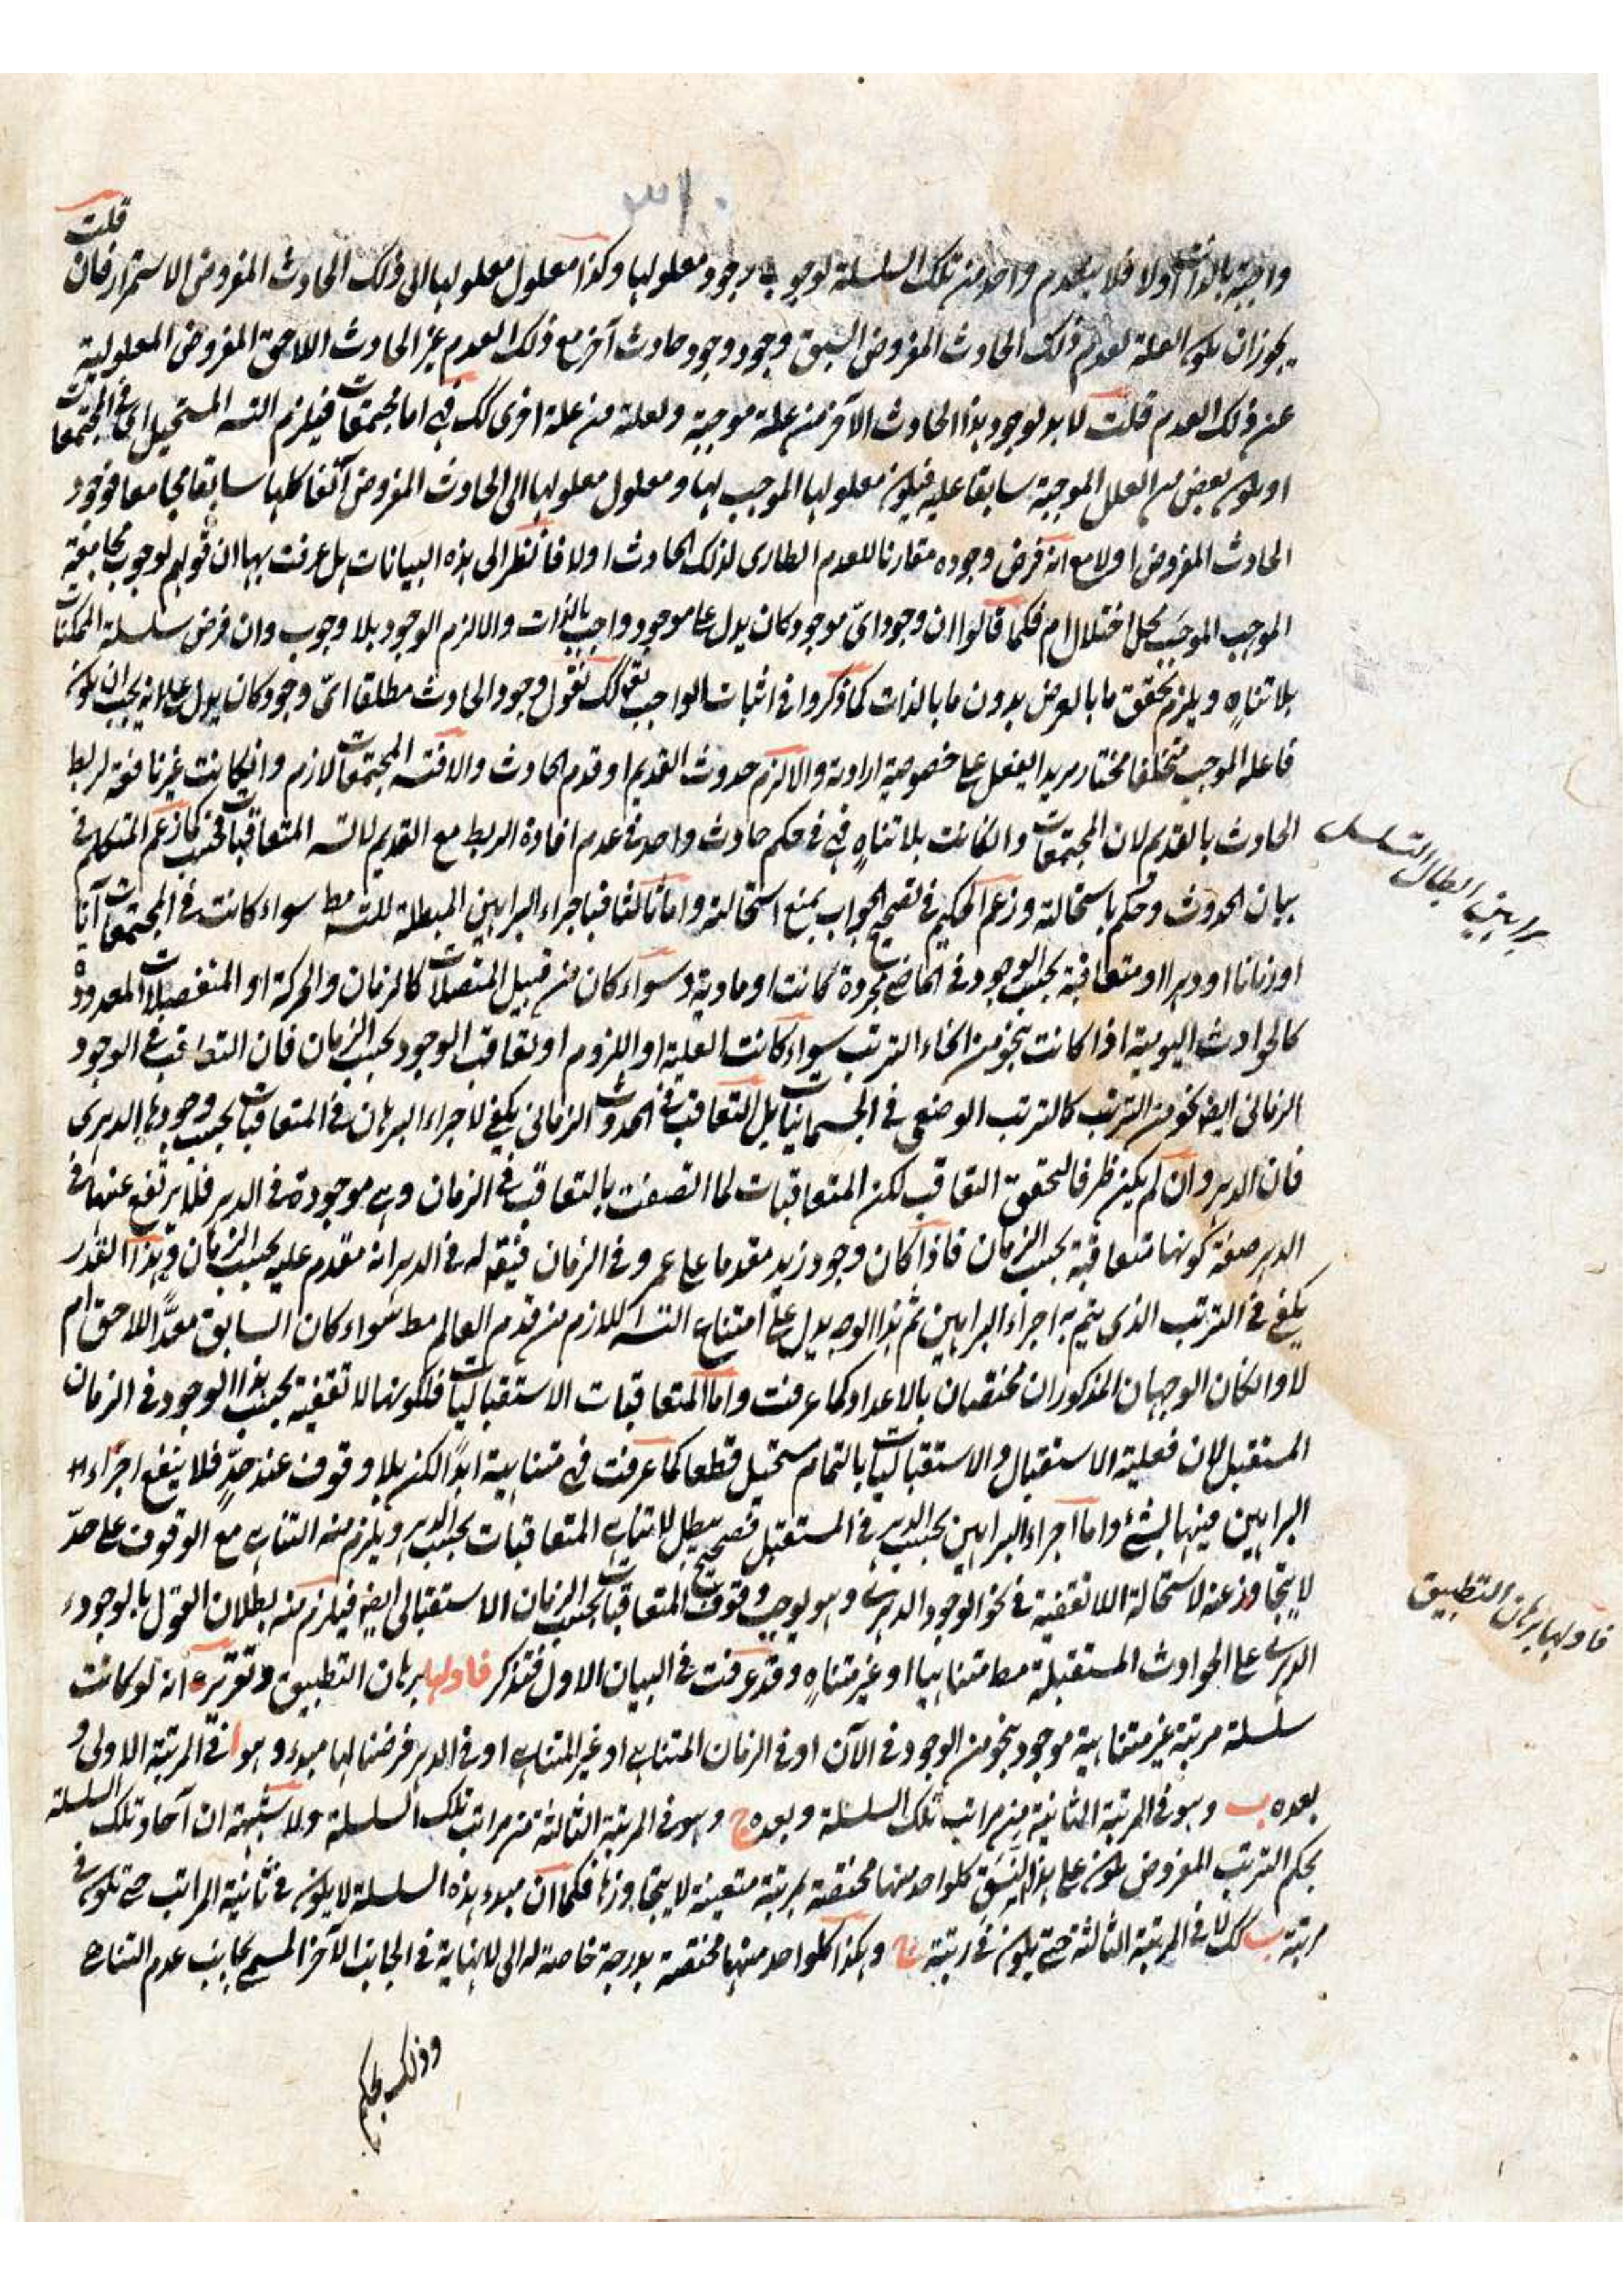 ٣١٠
واجبة بالذات أولا فلا ينعدم واحد من تلك السلسلة لوجوب وجود معلولها وكذا معلول معلولها الى ذلك الحادث المفروض الاستمرار فان قلت
يجوز ان يكون العلة لعدم ذلك الحادث المفروض السبق وجود وجود حادث آخر مع ذلك العدم غير الحادث اللاحق المفروض المعلولية
عن ذلك العدم قلت لا بد لوجود هذا الحادث الآخر من علة موجبة ولعلة من علة اخرى كك فهى اما مجتمعات فيلزم التسـ المستحيل اى فى المجتمعات
او يكون بعض من العلل الموجبة سابقا عليه فيكون معلولها الموجب لها ومعلول معلولها الى الحادث المفروض آنفا كلها سابقا مجامعا فوجود
الحادث المفروض اولا مع انه فرض وجوده مقارنا للعدم الطارى لذلك الحادث اولا فانظر الى هذه البيانات هل عرفت بها ان قولهم لوجوب مجامعة
الموجب الموجَب محل اختلال ام فكما قالوا ان وجود اىّ موجود كان يدل على موجود واجب بالذات والا لزم الوجود بلا وجوب وان فرض سلسلة الممكنات
بلا تناهٍ ويلزم تحقق ما بالعرض بدون ما بالذات كما ذكروا فى اثبات الواجب تعـ كك نقول وجود الحادث مطلقا اىّ وجود كان يدل على انه يجب ان يكون
فاعله الموجب متخلفا مختار مريدا لفعل على خصوصية ارادته والا لزم حدوث القديم او قدم الحادث والا فتسـ المجتمعات لازم وان كانت غير نافعة لربط
الحادث بالقديم لان المجتمعات وان كانت بلا تناهٍ فهى فى حكم حادث واحد فى عدم افادة الربط مع القديم لا تسـ المتعاقبات فحسب كما زعم المتكلم فى
بيان الحدوث وحكم باستحالته وزعم الحكيم فى تصحيح الجواب بمنع استحالته واما ثالثا فباجراء البراهين المبطلة للتسـ مط سواء كانت فى المجتمعات آنا
او زمانا او دهرا او متعاقبة بحسب الوجود فى الماضى مجردة كانت او مادية وسواء كان من قبيل المتصلات كالزمان والحركة او المنفصلات المعدودة
كالحوادث اليومية اذا كانت بنحو من انحاء الترتب سواء كانت العلية او اللزوم او تعاقب الوجود بحسب الزمان فان التعاقب فى الوجود
الزمانى ايضا نحو من الترتب كالترتب الوضعى فى الجسمانيات بل التعاقب فى الحدوث الزمانى يكفى لاجراء البرهان فى المتعاقبات بحسب وجودها الدهرى
فان الدهر وان لم يكن ظرفا لتحقق التعاقب لكن المتعاقبات لما اتصفت بالتعاقب فى الزمان وهى موجودة فى الدهر فلا يرتفع عنها فى
الدهر صفة كونها متعاقبة بحسب الزمان فاذا كان وجود زيد مقدما على عمرو فى الزمان فيقع له فى الدهر انه مقدم عليه بحسب الزمان وهذا القدر
يكفى فى الترتب الذى يتم به اجراء البراهين ثم هذا الوجه يدل على امتناع التسـ اللازم من قدم العالم مط سواء كان السابق معدًّا للاحق ام
لا وان كان الوجهان المذكوران مختصان بالاعداد كما عرفت واما المتعاقبات الاستقباليات فلكونها لا تقفية بحسب هذا الوجود فى الزمان
المستقبل لان فعلية الاستقبال والاستقباليات بالتمام مستحيل قطعا كما عرفت فهى متناهية ابداً لكن بلا وقوف عند حدٍّ فلا ينفع اجراء
البراهين فيها لشئ واما اجراء البراهين بحسب الدهر فى المستقبل فصحيح يبطل لا تناهى المتعاقبات بحسب الدهر ويلزم منه التناهى مع الوقوف على حدّ
لا يتجاوز عنه لاستحالة اللا تقفية فى نحو الوجود الدهرى وهو يوجب وقوف المتعاقبات بحسب الزمان الاستقبالى ايضا فيلزم منه بطلان القول بالوجود
الدهرى على الحوادث المستقبلة مط متناهيا او غير متناهٍ وقد عرفت فى البيان الاول فتذكر فاولها برهان التطبيق وتقريره انه لو كانت
سلسلة مرتبة غير متناهية موجود بنحو من الوجود فى الآن او فى الزمان المتناهى او غير المتناهى او فى الدهر فرضنا لها مبدء وهو ا فى المرتبة الاولى و
بعده ب وهو فى المرتبة الثانية من مراتب تلك السلسلة وبعده ج وهو فى المرتبة الثالثة من مراتب تلك السلسلة ولا شبهة ان آحاد تلك السلسلة
بحكم الترتب المفروض يكون على هذا النسق كلواحد منها مختصة بمرتبة متعينة لا يتجاوزها فكما ان مبدء هذه السلسلة لا يكون فى ثانية المراتب حتى تكون فى
مرتبة ب كك لا فى المرتبة الثالثة حتى يكون فى رتبة ج وهكذا كلواحد منها مختصة بدرجة خاصة له الى لا نهاية فى الجانب الآخر المسمى بجانب عدم التناهى
وذلك بحكم
براهين ابطال التسلسل
فاولها برهان التطبيق